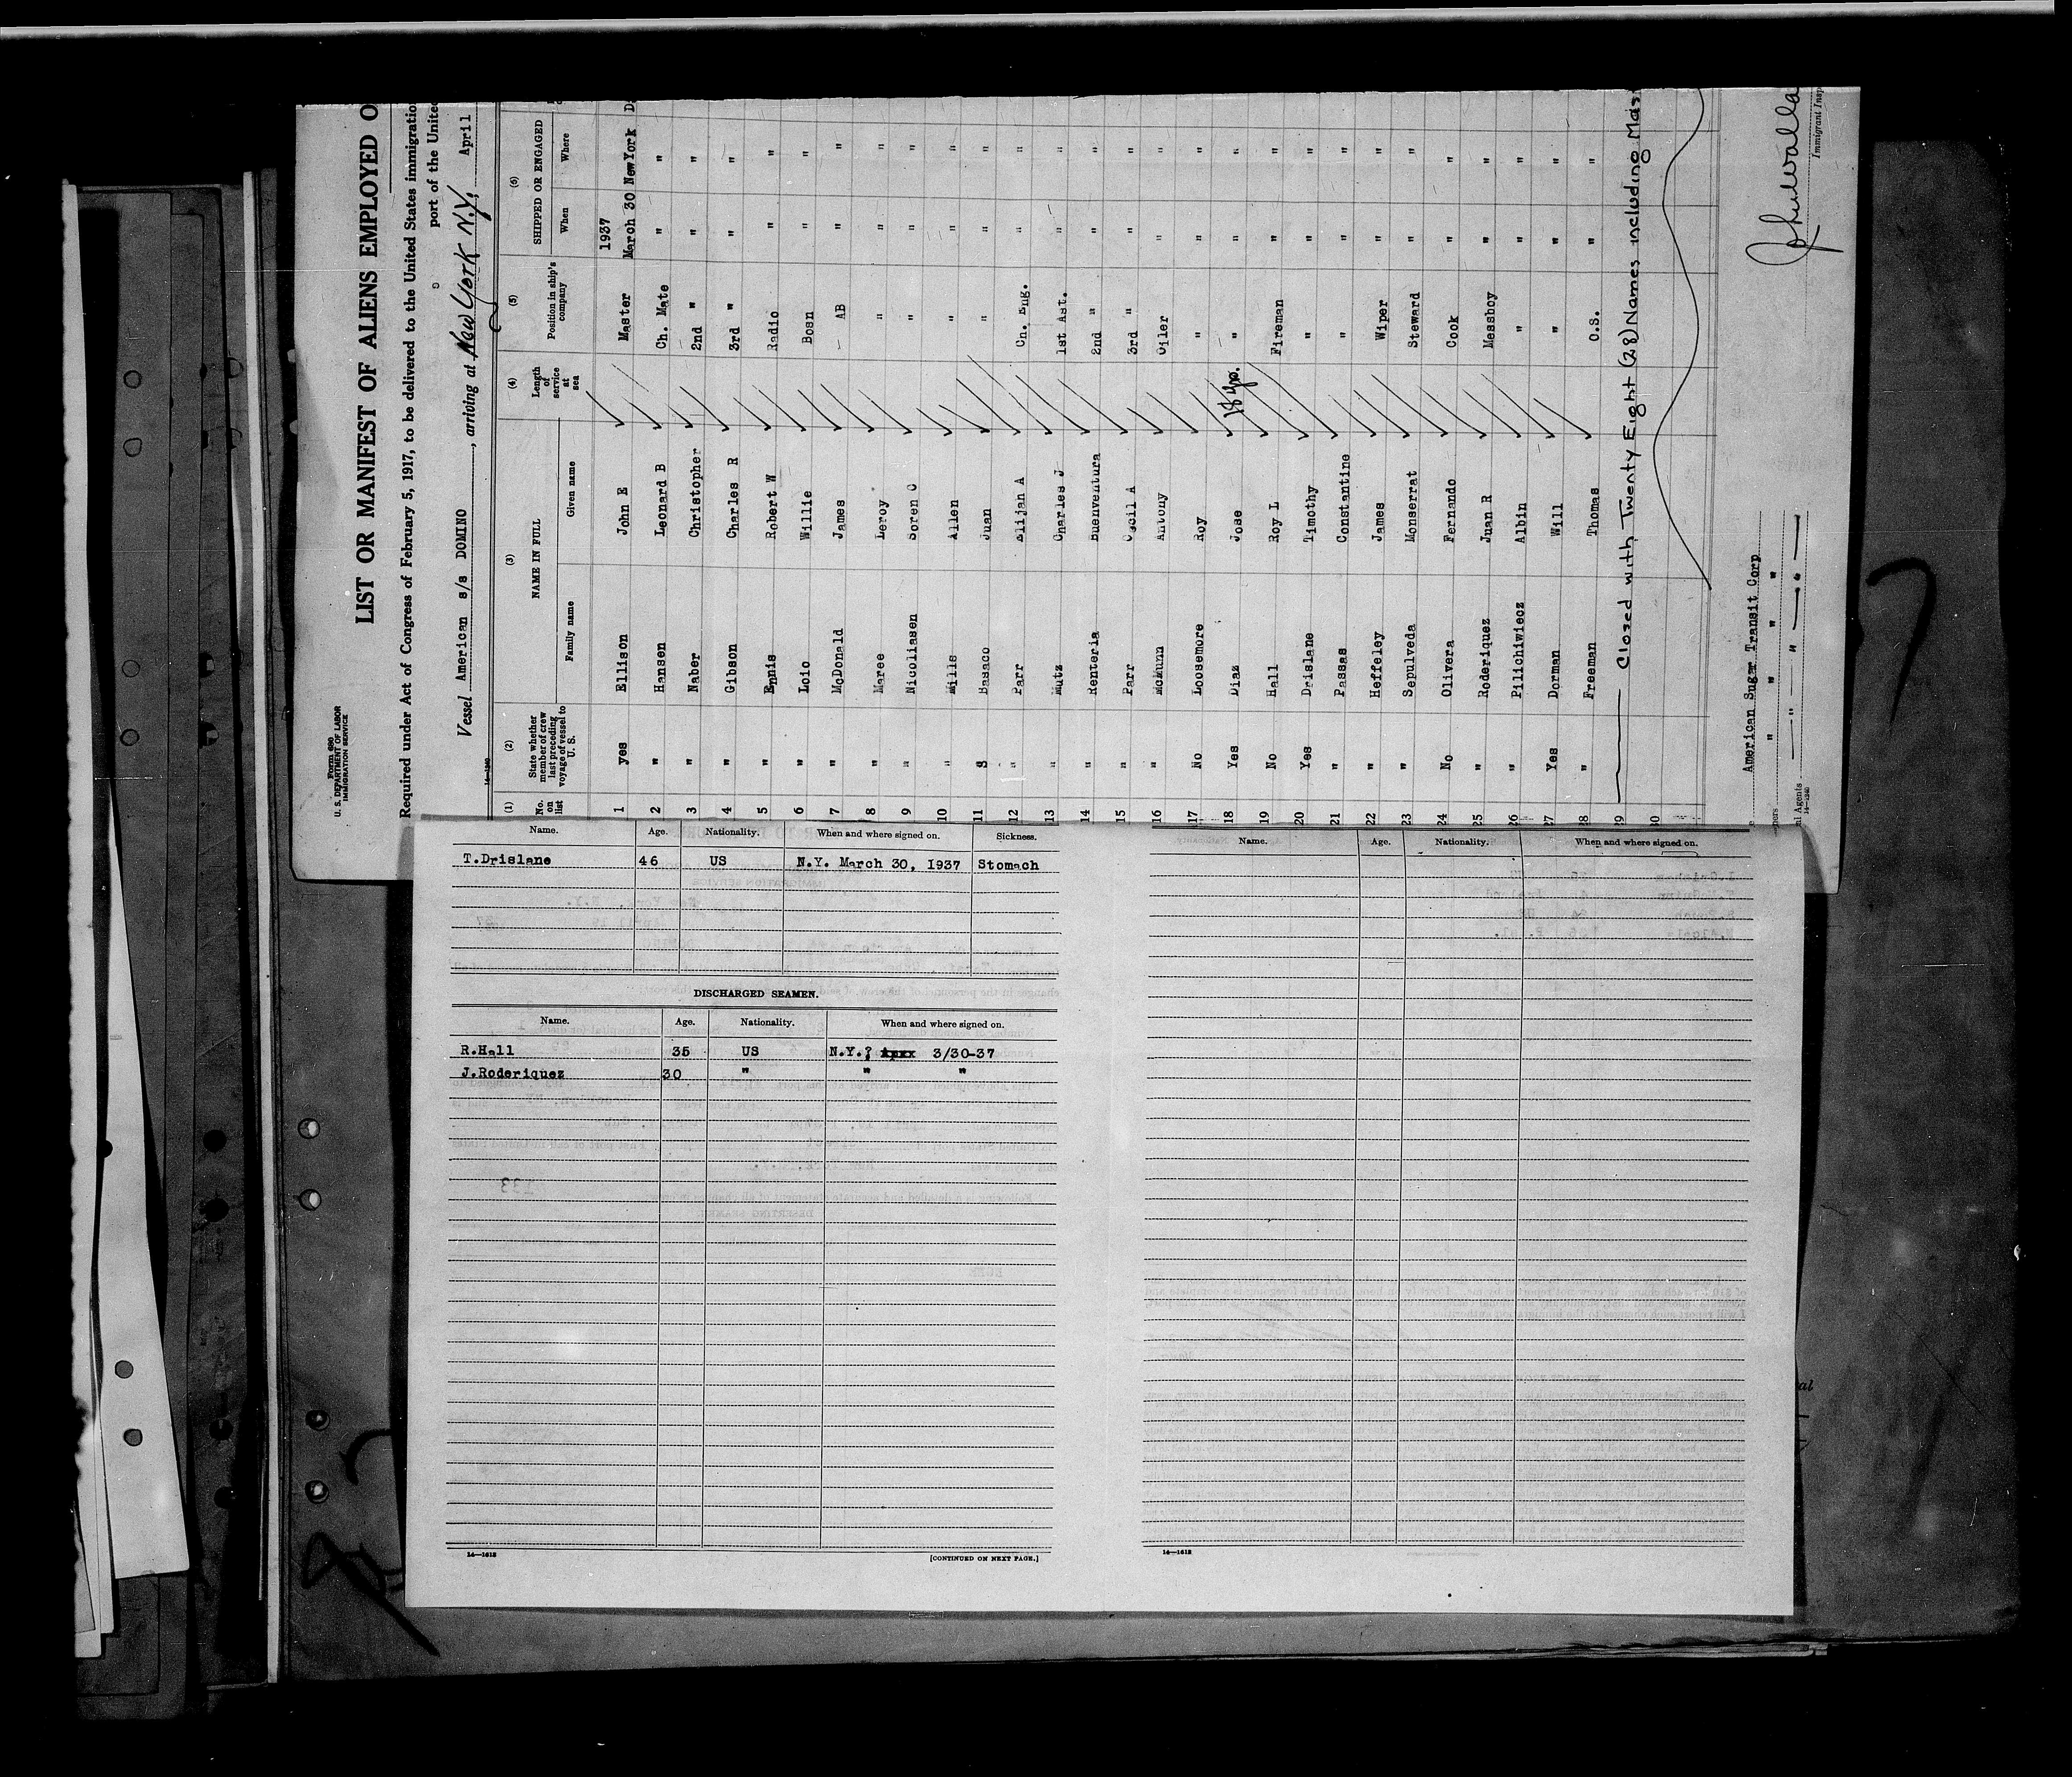 Form 680
U. S. DEPARTMENT OF LABOR
IMMIGRATION SERVICE
LIST OR MANIFEST OF ALIENS EMPLOYED O
Required under Act of Congress of February 5, 1917, to be delivered to the United States immigratio
port of the Unite
Vessel American s/s DOMINO, arriving at New York N.Y., April
14—1240
(1) (2) (3) (4) (5) (6)
No. on list
State whether member of crew last preceding voyage of vessel to U. S.
NAME IN FULL
Family name Given name
Length of service at sea
Position in ship's company
SHIPPED OR ENGAGED
When Where
1937
1 yes Ellison John E Master March 30 NewYork D
2 " Hansen Leonard B Ch. Mate " "
3 " Naber Christopher 2nd " " "
4 " Gibson Charles R 3rd " " "
5 " Ennis Robert W Radio " "
6 " Loic Willie Bosn " "
7 " McDonald James AB " "
8 " Maree Leroy " " "
9 " Nicoliasen Soren C " " "
10 " Mills Allen " " "
11 " Basaco Juan " " "
12 " Parr Elijah A Ch. Eng. " "
13 " Mutz Charles J 1st Ast. " "
14 " Renteria Buenventura 2nd " " "
15 " Parr Cecil A 3rd " " "
16 " McMunn Antony Oiler " "
17 No Loosemore Roy " " "
18 Yes Diaz Jose 18 yrs. " " "
19 No Hall Roy L Fireman " "
20 Yes Drislane Timothy " " "
21 " Passas Constantine " " "
22 " Heffeley James Wiper " "
23 " Sepulveda Monserrat Steward " "
24 No Olivera Fernando Cook " "
25 " Roderiquez Juan R Messboy " "
26 " Pilichiwiecz Albin " " "
27 Yes Dorman Will " " "
28 " Freeman Thomas O.S. " "
29 Closed with Twenty Eight (28) Names including Mas
30
American Sugar Transit Corp
" " " "
Immigrant Insp
Agents
14—1240
Name. Age. Nationality. When and where signed on. Sickness.
T.Drislane 46 US N.Y. March 30, 1937 Stomach
DISCHARGED SEAMEN.
Name. Age. Nationality. When and where signed on.
R.Hall 35 US N.Y.? 3/30-37
J.Roderiquez 30 " " "
14—1612
[CONTINUED ON NEXT PAGE.]
Name. Age. Nationality. When and where signed on.
14—1612